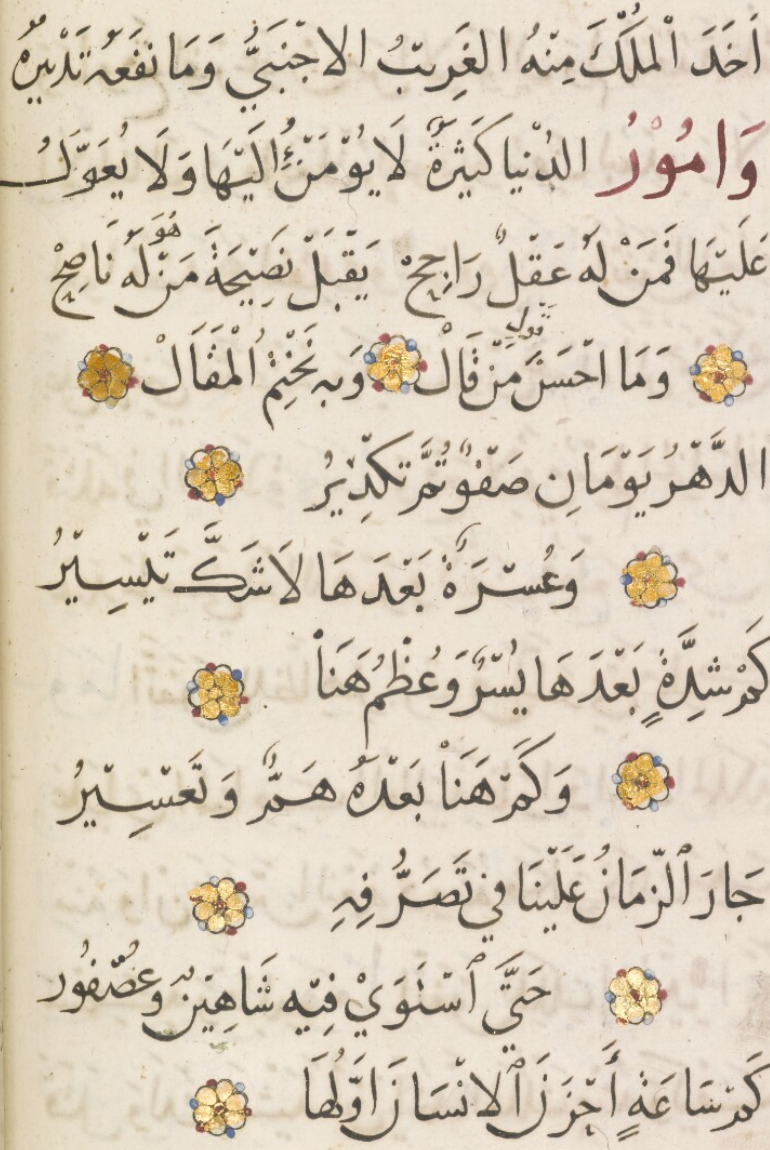 اَخَدَ اْلمُلْكَ مِنْهُ الغَرِيبُ الاجْنَبيُّ وَمَا نَفَعَهُ تَدْبِيرُهُ
وَامُوْرُ الدُنْيا كَثِيرَةٌ لَا يُوْمَنُ اِلَيْهَا وَلَا يُعَوَّلُ
عَلَيْهَا فَمَنْ لَهُ عَقْلٌ رَاجِحٌ يَقْبَلْ نَصِيْحَةَ مَنْ هُوَ لَهُ نَاصِحْ
وَمَا احْسَنَ قول مَنْ قَالْ وَبه نَخْتِمُ اْلمَقَالْ
الدَّهْرُ يَوْمَانِ صَفْوٌ ثُمَّ تكْدِيْرُ
وَعُسْرَةٌ بَعْدَهَا لَاشَكَّ تَيْسِيْرُ
كَمْ شِدَّةٍ بَعْدَهَا يُسْرٌ وَعُظْمُ هَنَاْ
وَكَمْ هَنَاْ بَعْدَهُ هَمٌّ وَتَعْسِيْرُ
جَارَ اْلزَّمَانُ عَلَيْنَا في تَصَرُّفِهِ
حَتَّي اسْتَوَيْ فِيْهِ شَاهِيْنٌ وعُصْفُور
كَمْ سَاعَةٍ أَحْزَنَ اْلاِنْسَانَ اَوَّلُهَا